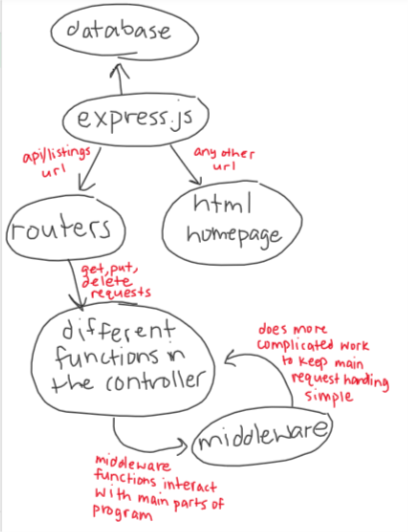 database
express.js
api/listings
url
any other
url
routers
html
homepage
get, put,
delete
requests
different
functions in
the controller
does more
complicated work
to keep main
request handing
simple
middleware
middleware
functions interact
with main parts of
program